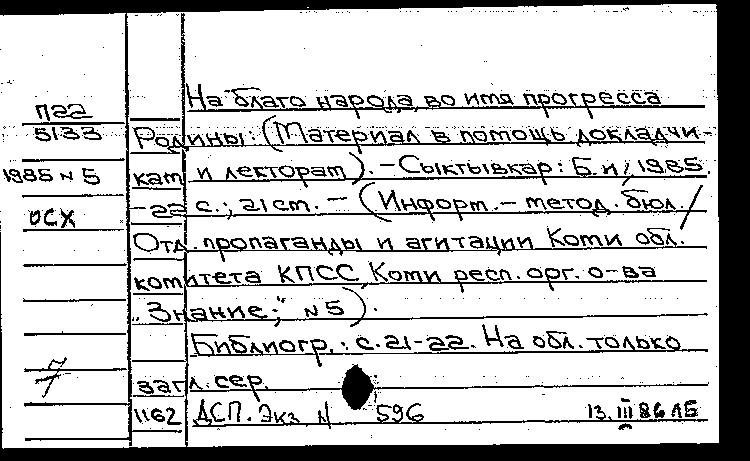 На благо народа, во имя прогресса
П22
5133 Родины: (Материал в помощь докладчи-
1985 N 5 кам и лекторам). - Сыктывкар: Б.и., 1985.
ОСХ - 22 с.; 21 ст. - (Информ. - метод. бюл. /
Отд. пропаганды и агитации Коми обл.
комитета КПСС, Коми респ. орг. о-ва
„Знание;" N 5).
Библиогр.: с. 21-22. На обл. только
7 загл. сер.
1162 ДСП. Экз N 596 13. III 86 ЛБ